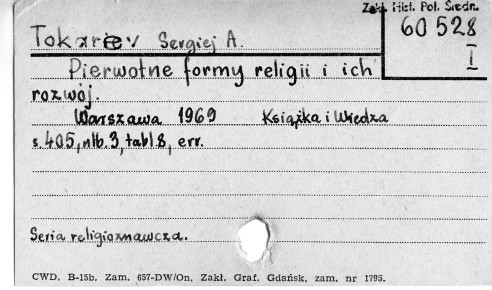 Zakł. Hist. Pol. Średn.
60 528
I
Tokariev Sergiej A.
Pierwotne formy religii i ich
rozwój.
Warszawa 1969 Książka i Wiedza
s. 405, nlb. 3, tabl. 8, err.
Seria religioznawcza.
CWD. B-15b. Zam. 657-DW/On. Zakł. Graf. Gdańsk, zam. nr 1795.